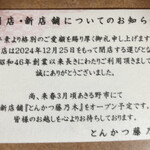 閉店・新店舗についてのお知ら
素より格別のご愛顧を賜り厚く御礼申し上げます
店は2024年12月25日をもって閉店する運びとな
昭和46年創業以来長きにわたりご利用頂きまして
誠にありがとうございました。
尚、来春3月頃あきる野市にて
新店舗『とんかつ藤乃木』をオープン予定です。
皆様のお越しを心よりお待ちしております。
とんかつ藤乃